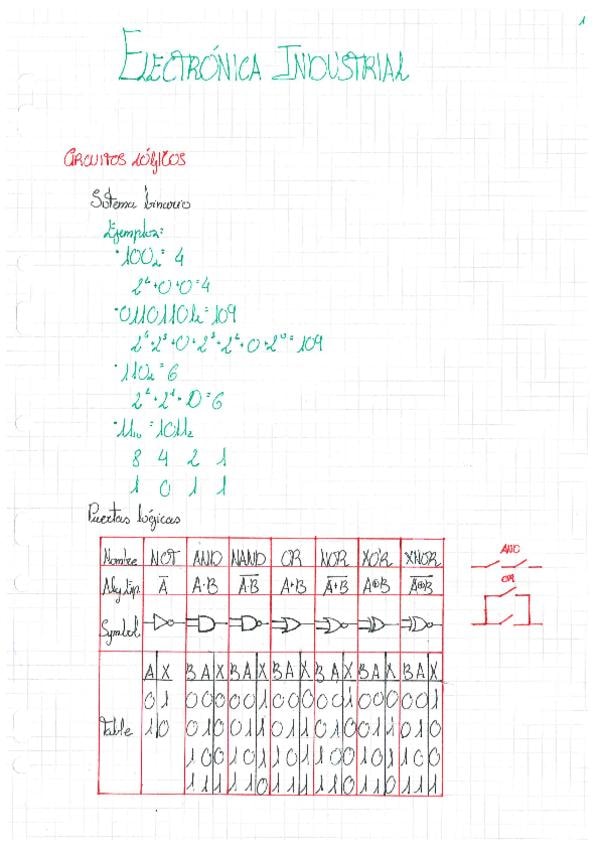 1
ELECTRÓNICA INDUSTRIAL
CIRCUITOS LÓGICOS
Sistema binario
Ejemplos:
· 100₂ = 4
2² + 0 + 0 = 4
· 01101101₂ = 109
2⁶ + 2⁵ + 0 + 2³ + 2² + 0 + 2⁰ = 109
· 110₂ = 6
2² + 2¹ + 0 = 6
· 11₁₀ = 1011₂
8 4 2 1
1 0 1 1
Puertas lógicas
Nombre NOT AND NAND OR NOR XOR XNOR
Alg Exp. A̅ A·B A̅·̅B̅ A+B A̅+̅B̅ A⊕B A̅⊕̅B̅
Symbol
Table
A X B A X B A X B A X B A X B A X B A X
0 1 0 0 0 0 0 1 0 0 0 0 0 1 0 0 0 0 0 1
1 0 0 1 0 0 1 1 0 1 1 0 1 0 0 1 1 0 1 0
1 0 0 1 0 1 1 0 1 1 0 0 1 0 1 1 0 0
1 1 1 1 1 0 1 1 1 1 1 0 1 1 0 1 1 1
AND
OR